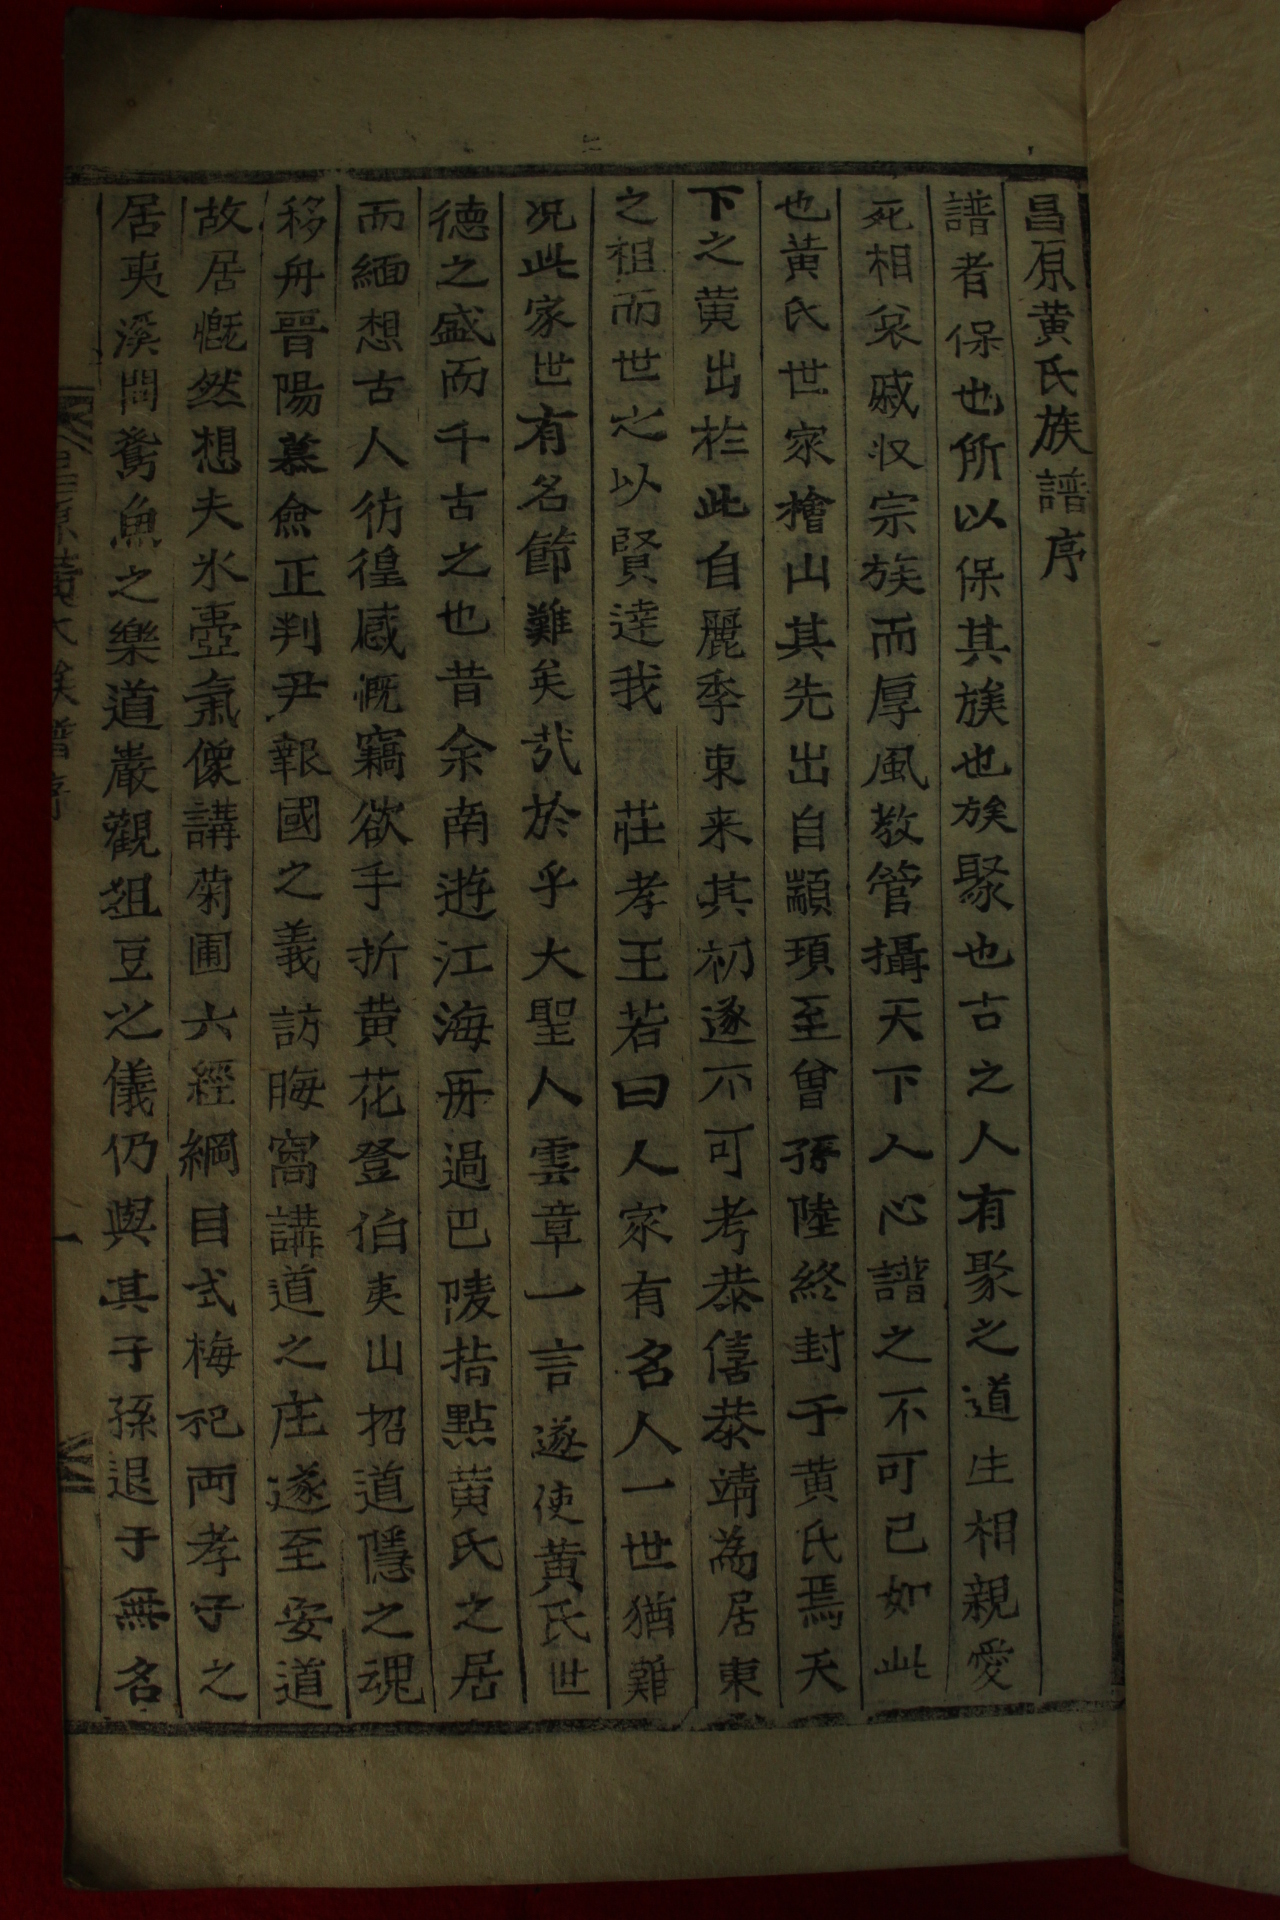 昌原黄氏族譜序
譜者保也所以保其族也族聚也古之人有聚之道生相親愛
死相哀戚収宗族而厚風教管攝天下人心譜之不可已如此
也黄氏世家檜山其先出自顓頊至曾孫陸終封于黄氏焉天
下之黄出於此自麗季東来其初遂不可考恭僖恭靖為居東
之祖而世之以賢達我 莊孝王若曰人家有名人一世猶難
况此家世有名節難矣哉於乎大聖人雲章一言遂使黄氏世
德之盛而千古之也昔余南遊江海再過巴陵指點黄氏之居
而緬想古人彷徨感慨竊欲手折黄花登伯夷山招道隱之魂
移舟晋陽慕僉正判尹報國之義訪晦窩講道之庄遂至安道
故居慨然想夫氷壺氣像講菊圃六經綱目式梅祀両孝子之
居夷溪間鴦魚之樂道巌觀俎豆之儀仍與其子孫退于無名
昌原黄氏族譜序
一